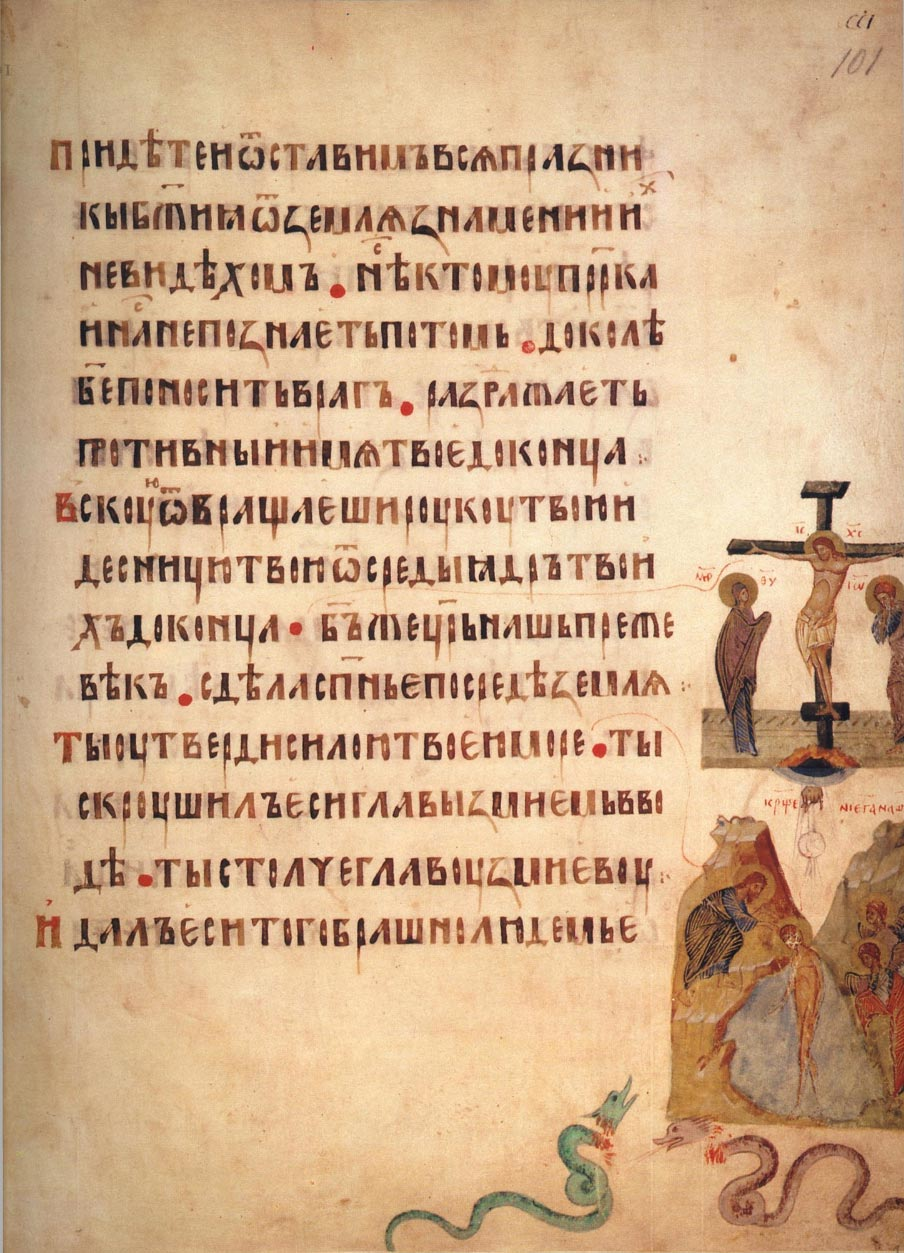 сс҃і
101
придѣтеиѿставимъвсѧпразни
кыбж҃иꙗѿземлѧзнамениих
невидѣхомъ.нѣктомоупрр҃ка
инанепознаетьпотомь.доколѣ
бж҃епоноситьврагъ.раздражаеть
противныиимѧтвоедоконца
въскоуюѿвращаешироукоутвоюи
десницютвоюѿсредыꙗдрътвои
хъдоконца.бъ҃жец҃рьнашьпреже
вѣкъ.сдѣласп҃ньепосредѣземлѧ
тыоутвердисилоютвоеюморе.ты
скроушилъесиглавызмиемъвво
дѣ.тыстолчеглавоузмиевоу
идалъеситогобрашнолюдемье
і҃с х҃с
м҃р ѳ҃у
іѡ҃